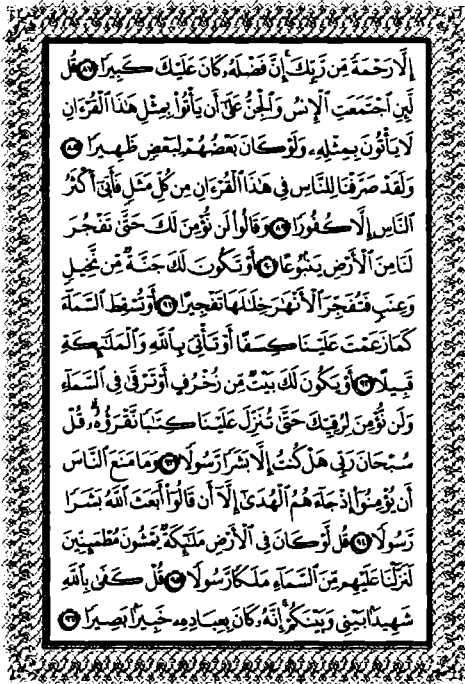 إِلَّا رَحْمَةً مِّن رَّبِّكَ ۚ إِنَّ فَضْلَهُۥ كَانَ عَلَيْكَ كَبِيرًا ۝٨٧ قُل
لَّئِنِ ٱجْتَمَعَتِ ٱلْإِنسُ وَٱلْجِنُّ عَلَىٰٓ أَن يَأْتُوا۟ بِمِثْلِ هَـٰذَا ٱلْقُرْءَانِ
لَا يَأْتُونَ بِمِثْلِهِۦ وَلَوْ كَانَ بَعْضُهُمْ لِبَعْضٍ ظَهِيرًا ۝٨٨
وَلَقَدْ صَرَّفْنَا لِلنَّاسِ فِى هَـٰذَا ٱلْقُرْءَانِ مِن كُلِّ مَثَلٍ فَأَبَىٰٓ أَكْثَرُ
ٱلنَّاسِ إِلَّا كُفُورًا ۝٨٩ وَقَالُوا۟ لَن نُّؤْمِنَ لَكَ حَتَّىٰ تَفْجُرَ
لَنَا مِنَ ٱلْأَرْضِ يَنۢبُوعًا ۝٩٠ أَوْ تَكُونَ لَكَ جَنَّةٌ مِّن نَّخِيلٍ
وَعِنَبٍ فَتُفَجِّرَ ٱلْأَنْهَـٰرَ خِلَـٰلَهَا تَفْجِيرًا ۝٩١ أَوْ تُسْقِطَ ٱلسَّمَآءَ
كَمَا زَعَمْتَ عَلَيْنَا كِسَفًا أَوْ تَأْتِىَ بِٱللَّهِ وَٱلْمَلَـٰٓئِكَةِ
قَبِيلًا ۝٩٢ أَوْ يَكُونَ لَكَ بَيْتٌ مِّن زُخْرُفٍ أَوْ تَرْقَىٰ فِى ٱلسَّمَآءِ
وَلَن نُّؤْمِنَ لِرُقِيِّكَ حَتَّىٰ تُنَزِّلَ عَلَيْنَا كِتَـٰبًا نَّقْرَؤُهُۥ ۗ قُلْ
سُبْحَانَ رَبِّى هَلْ كُنتُ إِلَّا بَشَرًا رَّسُولًا ۝٩٣ وَمَا مَنَعَ ٱلنَّاسَ
أَن يُؤْمِنُوٓا۟ إِذْ جَآءَهُمُ ٱلْهُدَىٰٓ إِلَّآ أَن قَالُوٓا۟ أَبَعَثَ ٱللَّهُ بَشَرًا
رَّسُولًا ۝٩٤ قُل لَّوْ كَانَ فِى ٱلْأَرْضِ مَلَـٰٓئِكَةٌ يَمْشُونَ مُطْمَئِنِّينَ
لَنَزَّلْنَا عَلَيْهِم مِّنَ ٱلسَّمَآءِ مَلَكًا رَّسُولًا ۝٩٥ قُلْ كَفَىٰ بِٱللَّهِ
شَهِيدًۢا بَيْنِى وَبَيْنَكُمْ ۚ إِنَّهُۥ كَانَ بِعِبَادِهِۦ خَبِيرًۢا بَصِيرًا ۝٩٦